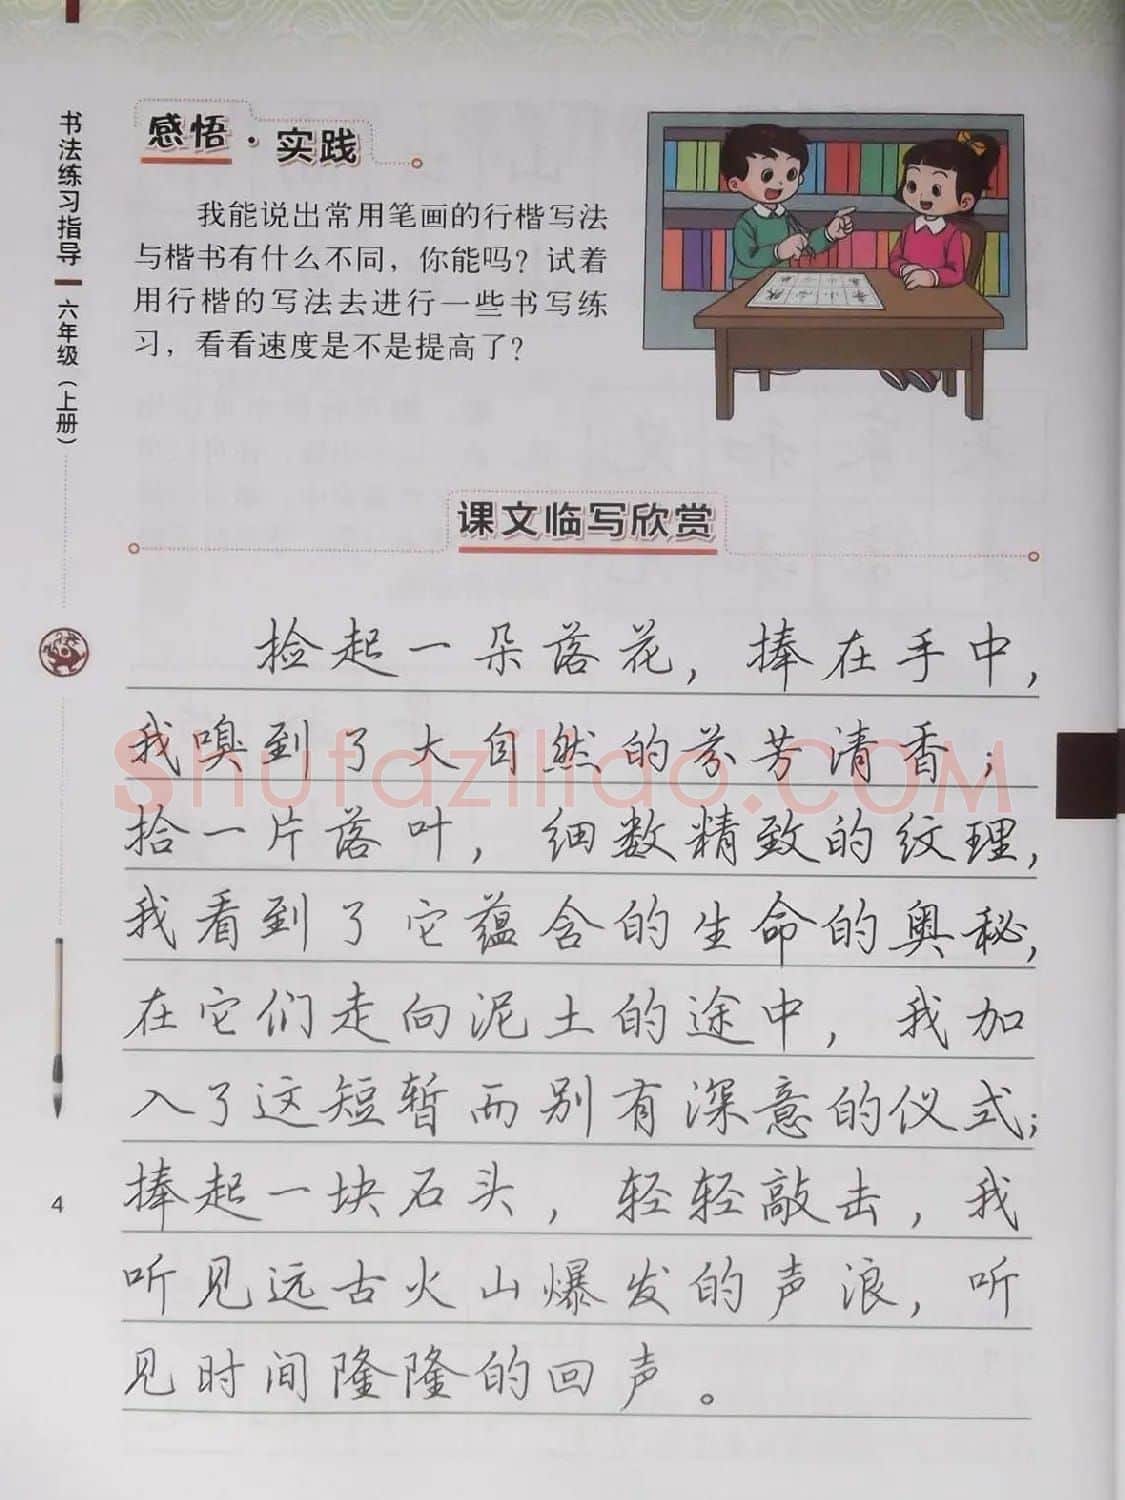 书法练习指导 六年级（上册）
感悟·实践
我能说出常用笔画的行楷写法
与楷书有什么不同，你能吗？试着
用行楷的写法去进行一些书写练
习，看看速度是不是提高了？
课文临写欣赏
捡起一朵落花，捧在手中，
我嗅到了大自然的芬芳清香；
拾一片落叶，细数精致的纹理，
我看到了它蕴含的生命的奥秘，
在它们走向泥土的途中，我加
入了这短暂而别有深意的仪式；
捧起一块石头，轻轻敲击，我
听见远古火山爆发的声浪，听
见时间隆隆的回声。
4
Shufaziliao.COM